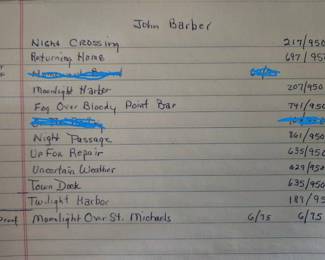 John Barber
Night Crossing 217/950
Returning Home 697/950
Moonlight Harbor 207/950
Fog Over Bloody Point Bar 791/950
Night Passage 861/950
Up For Repair 635/950
Uncertain Weather 429/950
Town Dock 635/950
Twilight Harbor 187/950
Proof Moonlight Over St. Michaels 6/75 6/75